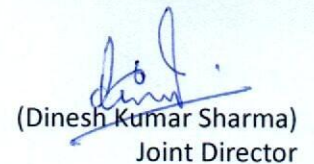 (Dinesh Kumar Sharma)
Joint Director